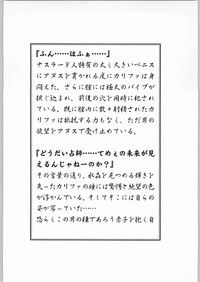 『ふん……はふぁ……』
ナスラード人特有の太く大きいペニス
にアヌスを貫かれる度にカリファは身
悶えた。さらに膣には極太のバイブが
捩じ込まれ、前後の穴を同時に犯されて
いる。既に膣内に数々射精されたカリ
ファは抵抗する力もなく、ただ男の
欲望をアヌスで受け止めている。
『どうだい占師……てめぇの未来が見
えるんじゃねーのか？』
その言葉の通り、水晶を見つめる輝きを
失ったカリファの瞳には驚愕と絶望の色
が浮かんでいる。そしてそこには自らの
姿が写っていた……
恐らくこの男の種であろう赤子を抱く自